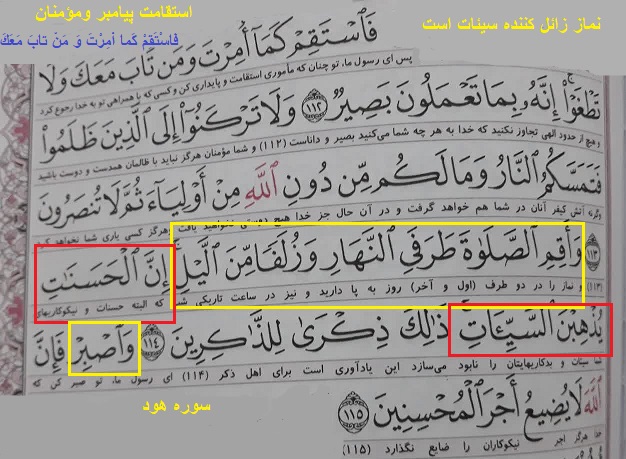 استقامت پیامبر ومؤمنان
نماز زائل کننده سیئات است
فَاسْتَقِمْ کَما اُمِرْتَ وَ مَنْ تابَ مَعَکَ
فَٱسْتَقِمْ كَمَآ أُمِرْتَ وَمَن تَابَ مَعَكَ وَلَا
پس ای رسول ما، تو چنان که مأموری استقامت و پایداری کن و کسی که با همراهی تو به خدا رجوع کرد
تَطْغَوْا۟ إِنَّهُۥ بِمَا تَعْمَلُونَ بَصِيرٌ ﴿۱۱۲﴾ وَلَا تَرْكَنُوٓا۟ إِلَى ٱلَّذِينَ ظَلَمُوا۟
و هیچ از حدود الهی تجاوز نکنید که خدا به هر چه شما می‌کنید بصیر و داناست (۱۱۲) و شما مؤمنان هرگز نباید با ظالمان همدست و دوست باشید
فَتَمَسَّكُمُ ٱلنَّارُ وَمَا لَكُم مِّن دُونِ ٱللَّهِ مِنْ أَوْلِيَآءَ ثُمَّ لَا تُنصَرُونَ
وگرنه آتش کیفر آنان در شما هم خواهد گرفت و در آن حال جز خدا هیچ دوستی نخواهید یافت هرگز کسی یاری شما نخواهد کرد
﴿۱۱۳﴾ وَأَقِمِ ٱلصَّلَوٰةَ طَرَفَىِ ٱلنَّهَارِ وَزُلَفًا مِّنَ ٱلَّيْلِ إِنَّ ٱلْحَسَنَـٰتِ
(۱۱۳) و نماز را در دو طرف (اول و آخر) روز به پا دارید و نیز در ساعت تاریکی شب که البته حسنات و نیکوکاریهای
يُذْهِبْنَ ٱلسَّيِّـَٔاتِ ذَٰلِكَ ذِكْرَىٰ لِلذَّٰكِرِينَ ﴿۱۱۴﴾ وَٱصْبِرْ فَإِنَّ
شما سیئات و بدکاریهایتان را نابود می‌سازد این یادآوری است برای اهل ذکر (۱۱۴) ای رسول ما، تو صبر کن که
ٱللَّهَ لَا يُضِيعُ أَجْرَ ٱلْمُحْسِنِينَ ﴿۱۱۵﴾
خدا هرگز اجر نیکوکاران را ضایع نگذارد (۱۱۵)
سوره هود